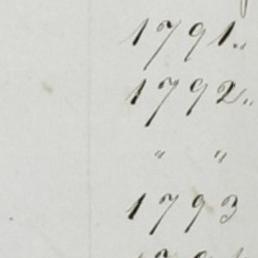 1791„
1792„
" "
1793